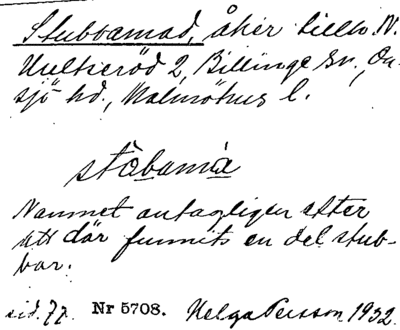 Stubbamad, åker tillh. N.
Hultseröd 2, Billinge sn, On-
sjö hd., Malmöhus l.
stobamá
Namnet antagligen efter
att där funnits en del stub-
bar.
sid. 77. Nr 5708. Helga Persson 1932.